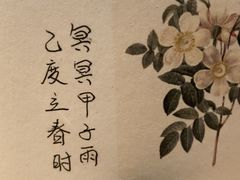 冥冥甲子雨
乙度立春时